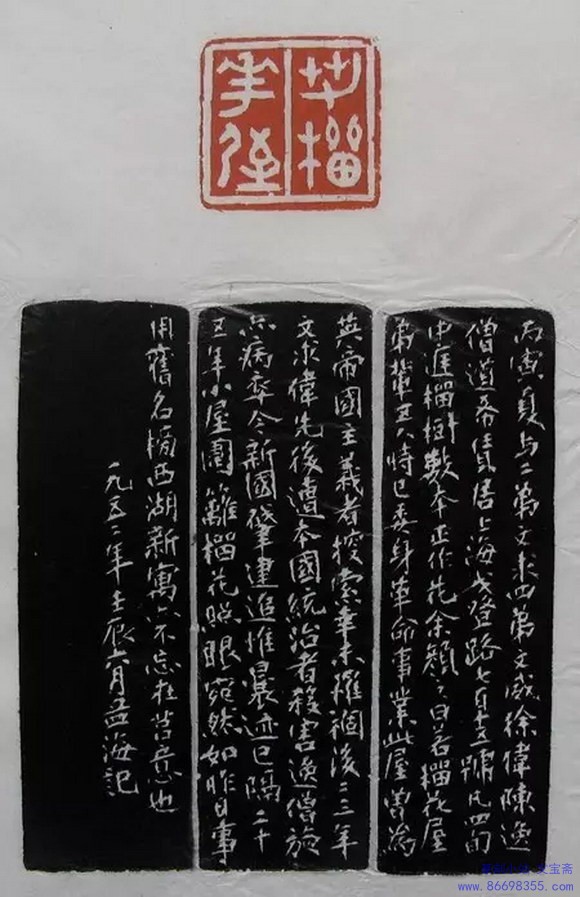 若榴
華屋
丙寅夏与二弟文求四弟文威徐偉陳逸
僧道希賃居上海戈登路七百十三號凡四旬
中庭榴樹數本正作花余顏之曰若榴花屋
弟輩五人時已委身革命事業此屋曾為
英帝國主義者搜索幸未罹禍後二三年
文求偉先後遭本國統治者殺害逸僧旋
亦病卒今新國肇建追惟曩迹已隔二十
五年小屋圍籬榴花照眼宛然如昨日事
用舊名榜西湖新寓亦不忘在莒意也
一九五二年壬辰六月孟海記
www.86698355.com